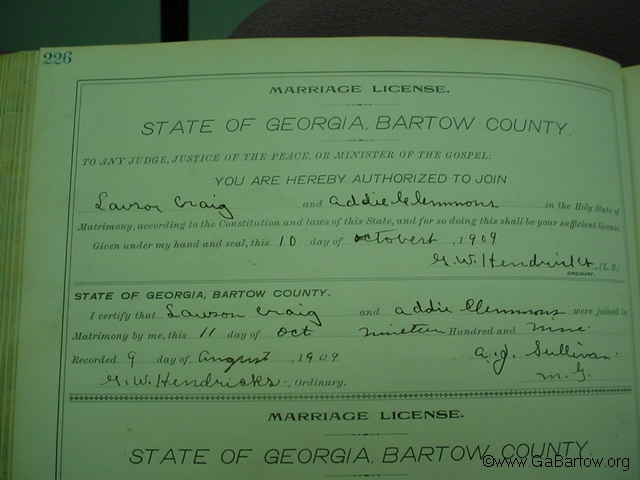 226
MARRIAGE LICENSE.
STATE OF GEORGIA, BARTOW COUNTY.
TO ANY JUDGE, JUSTICE OF THE PEACE, OR MINISTER OF THE GOSPEL:
YOU ARE HEREBY AUTHORIZED TO JOIN
Lawson Craig and Addie Clemmons in the Holy State of
Matrimony, according to the Constitution and laws of this State, and for so doing this shall be your sufficient license.
Given under my hand and seal, this 10 day of , 1909
G. W. Hendricks, (L. S.)
ORDINARY.
STATE OF GEORGIA, BARTOW COUNTY.
I certify that Lawson Craig and Addie Clemmons were joined in
Matrimony by me, this 11 day of Oct nineteen Hundred and nine.
Recorded 9 day of August, 1909. A. J. Sullivan
G. W. Hendricks, Ordinary. M. G.
MARRIAGE LICENSE.
STATE OF GEORGIA, BARTOW COUNTY.
©www.GaBartow.org